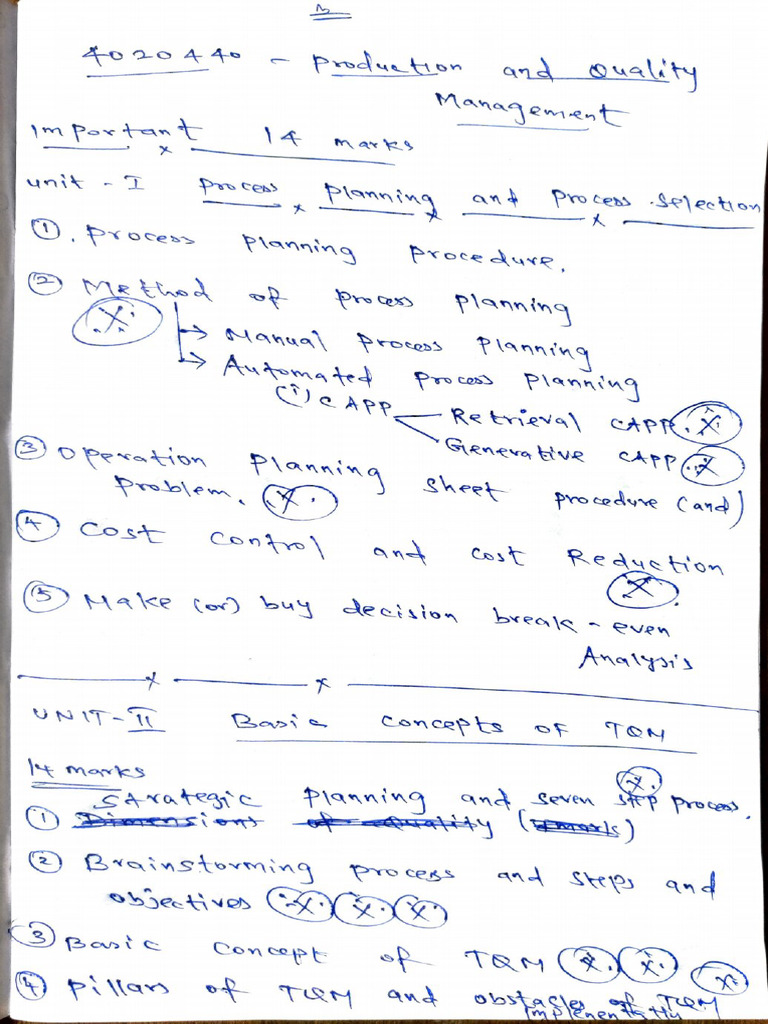 4020440 - Production and Quality
Management
Important 14 marks
unit - I Process Planning and Process Selection
①. Process Planning Procedure.
② Method of process planning
→ Manual process planning
→ Automated process planning
(i) CAPP Retrieval CAPP.
Generative CAPP
③ Operation Planning sheet procedure (and)
Problem.
④ Cost control and cost Reduction
⑤ Make (or) buy decision break-even
Analysis
UNIT-II Basic Concepts OF TQM
14 marks
Strategic Planning and seven step process.
① Dimensions of Quality
② Brainstorming process and steps and
objectives
③ Basic concept of TQM
④ Pillars of TQM and obstacles of TQM